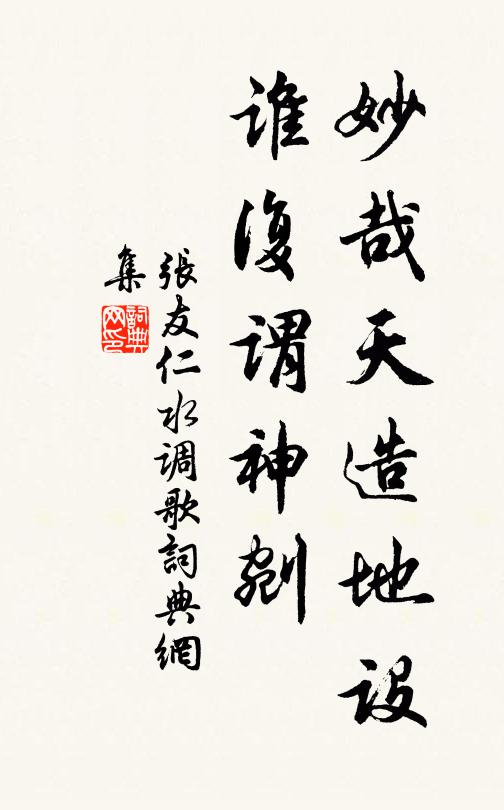 妙哉天造地设
谁復谓神剜
張友仁水调歌詞典網
集
詞典
网印